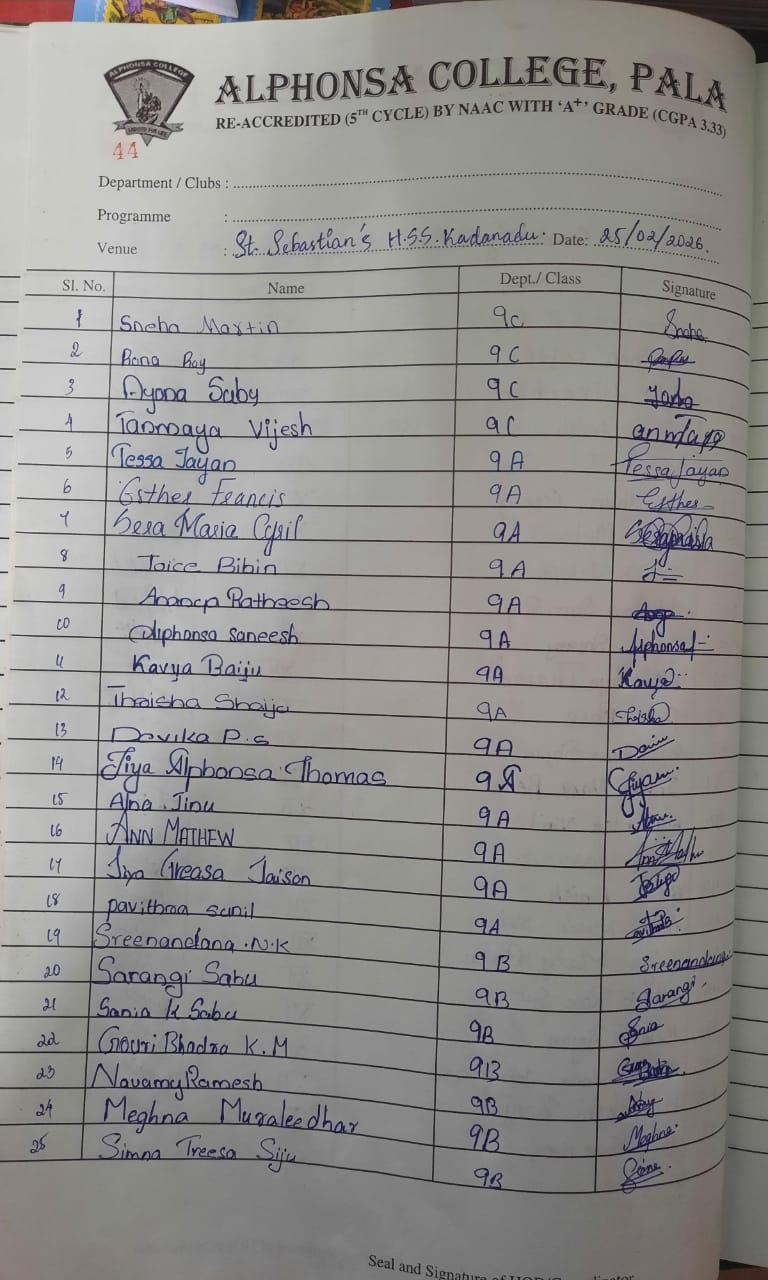 ALPHONSA COLLEGE
ALPHONSA COLLEGE, PALA
RE-ACCREDITED (5TH CYCLE) BY NAAC WITH ‘A+’ GRADE (CGPA 3.33)
44
Department / Clubs :
Programme :
Venue : St. Sebastian's H.S.S. Kadanadu. Date: 25/02/2026.
Sl. No. Name Dept./ Class Signature
1 Sneha Martin 9C Sneha
2 Roy 9C
3 Ayona Saby 9C
4 Tanmaya Vijesh 9C
5 Tessa Jayan 9A Tessa Jayan
6 Esther Francis 9A Esther
7 Sera Maria 9A
8 Joice Bibin 9A
9 Ratheesh 9A
10 Alphonsa Saneesh 9A Alphonsa
11 Kavya Baiju 9A Kavya
12 Thraisha Shaiju 9A
13 Devika P.S 9A
14 Jiya Alphonsa Thomas 9A
15 Alna Jinu 9A
16 ANN MATHEW 9A
17 Jiya Greasa Jaison 9A
18 pavithra sunil 9A
19 Sreenandana .N.K 9B Sreenandana
20 Sarangi Sabu 9B Sarangi
21 Sania K Sabu 9B Sania
22 Gouri Bhadra K.M 9B
23 Navamy Ramesh 9B
24 Meghna Muraleedhar 9B Meghna
25 Simna Treesa Siju 9B
Seal and Signature of HOD/Coordinator